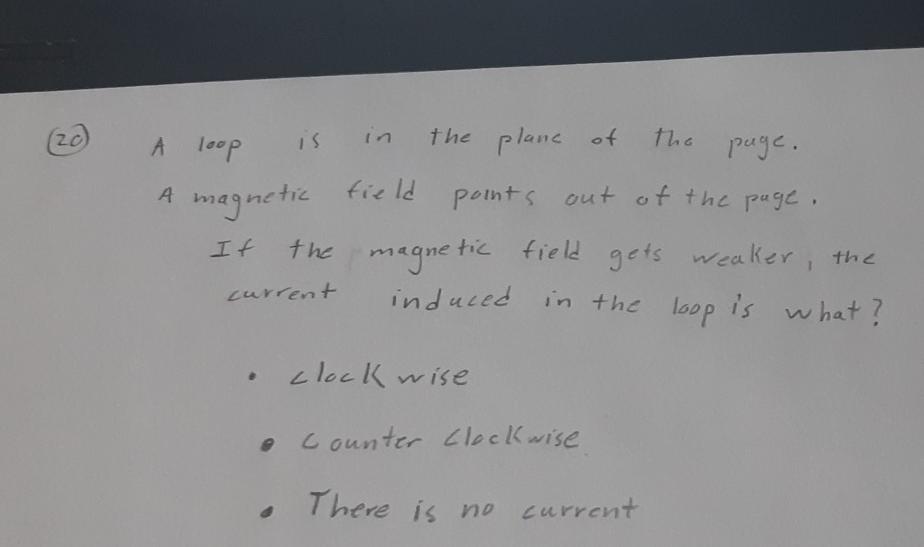 (20) A loop is in the plane of the page.
A magnetic field points out of the page.
If the magnetic field gets weaker, the
current induced in the loop is what?
• clockwise
• Counter clockwise
• There is no current